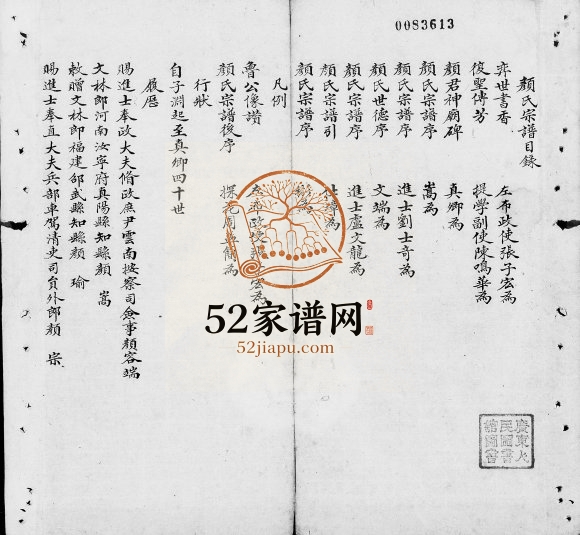 0083613
顏氏宗譜目錄
弈世書香 左布政使張子宏為
復聖傳芳 提學副使陳鳴華為
顏君神廟碑 真卿為
顏氏宗譜序 嵩為
顏氏宗譜序 進士劉士奇為
顏氏世德序 文端為
顏氏宗譜序 進士盧文龍為
顏氏宗譜引
顏氏宗譜序
凡例
魯公像讚
顏氏宗譜後序
行狀
自子淵起至真卿四十世
履歷
賜進士奉政大夫脩政庶尹雲南按察司僉事顏容端
文林郎河南汝寧府真陽縣知縣顏 嵩
敕贈文林郎福建邵武縣知縣顏 瑜
賜進士奉直大夫兵部車駕清吏司員外郎顏 宗
52家谱网
52jiapu.com
廣東人
民圖書